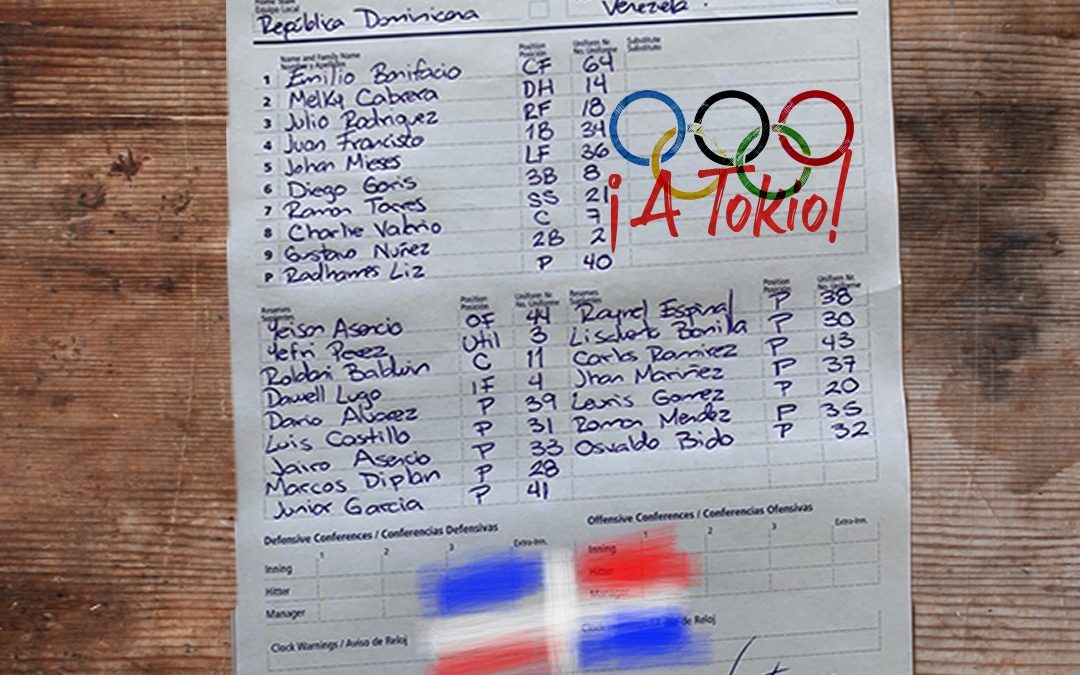 Home Team
Equipo Local
República Dominicana
Venezuela.
Name and Family Name
Nombre y Apellidos
Position
Posición
Uniform Nr.
No. Uniforme
Substitute
Substituto
1 Emilio Bonifacio CF 64
2 Melky Cabrera DH 14
3 Julio Rodriguez RF 18
4 Juan Francisco 1B 34
5 Johan Mieses LF 36
6 Diego Goris 3B 8
7 Ramon Torres SS 21
8 Charlie Valerio C 7
9 Gustavo Nuñez 2B 2
P Radhames Liz P 40
¡A Tokio!
Reserves
Suplentes
Position
Posición
Uniform Nr.
No. Uniforme
Reserves
Suplentes
Position
Posición
Uniform Nr.
No. Uniforme
Yeison Asencio OF 44 Raynel Espinal P 38
Yefri Perez Util 3 Lisalverto Bonilla P 30
Roldani Baldwin C 11 Carlos Ramirez P 43
Dawell Lugo IF 4 Jhan Mariñez P 37
Dario Alvarez P 39 Leuris Gomez P 20
Luis Castillo P 31 Ramon Mendez P 35
Jairo Asencio P 33 Osvaldo Bido P 32
Marcos Diplan P 28
Junior Garcia P 41
Defensive Conferences / Conferencias Defensivas
Offensive Conferences / Conferencias Ofensivas
1 2 3 Extra-Inn.
1 2 3 Extra-Inn.
Inning
Inning
Hitter
Hitter
Manager
Clock Warnings / Aviso de Reloj
Clock Warnings / Aviso de Reloj